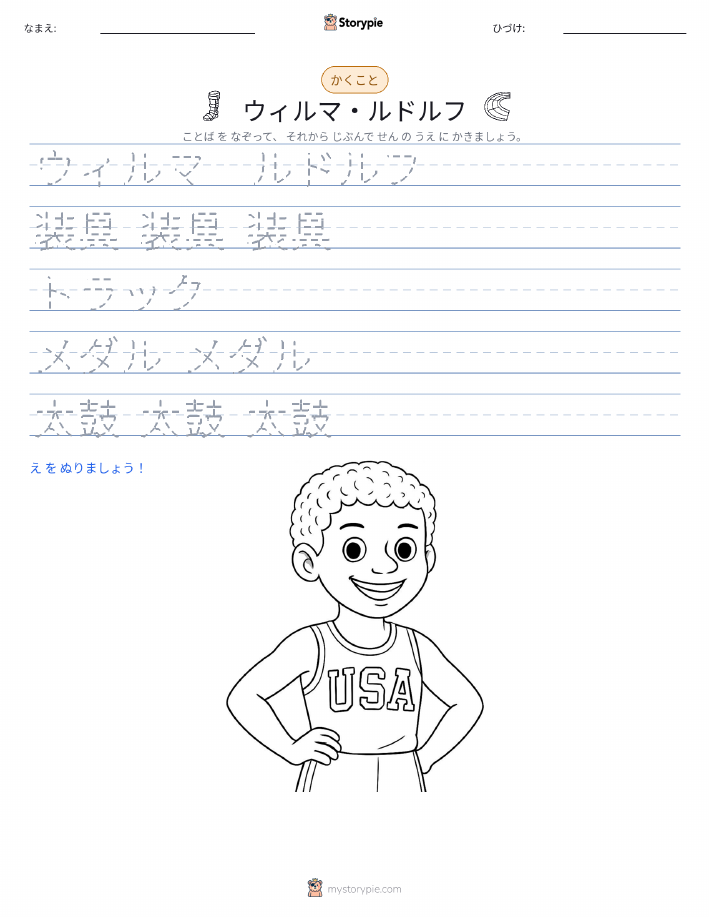 なまえ:
Storypie
ひづけ:
かくこと
ウィルマ・ルドルフ
ことば を なぞって、 それから じぶんで せん の うえ に かきましょう。
ウィルマ ルドルフ
装具 装具 装具
トラック
メダル メダル
太鼓 太鼓 太鼓
え を ぬりましょう！
USA
mystorypie.com